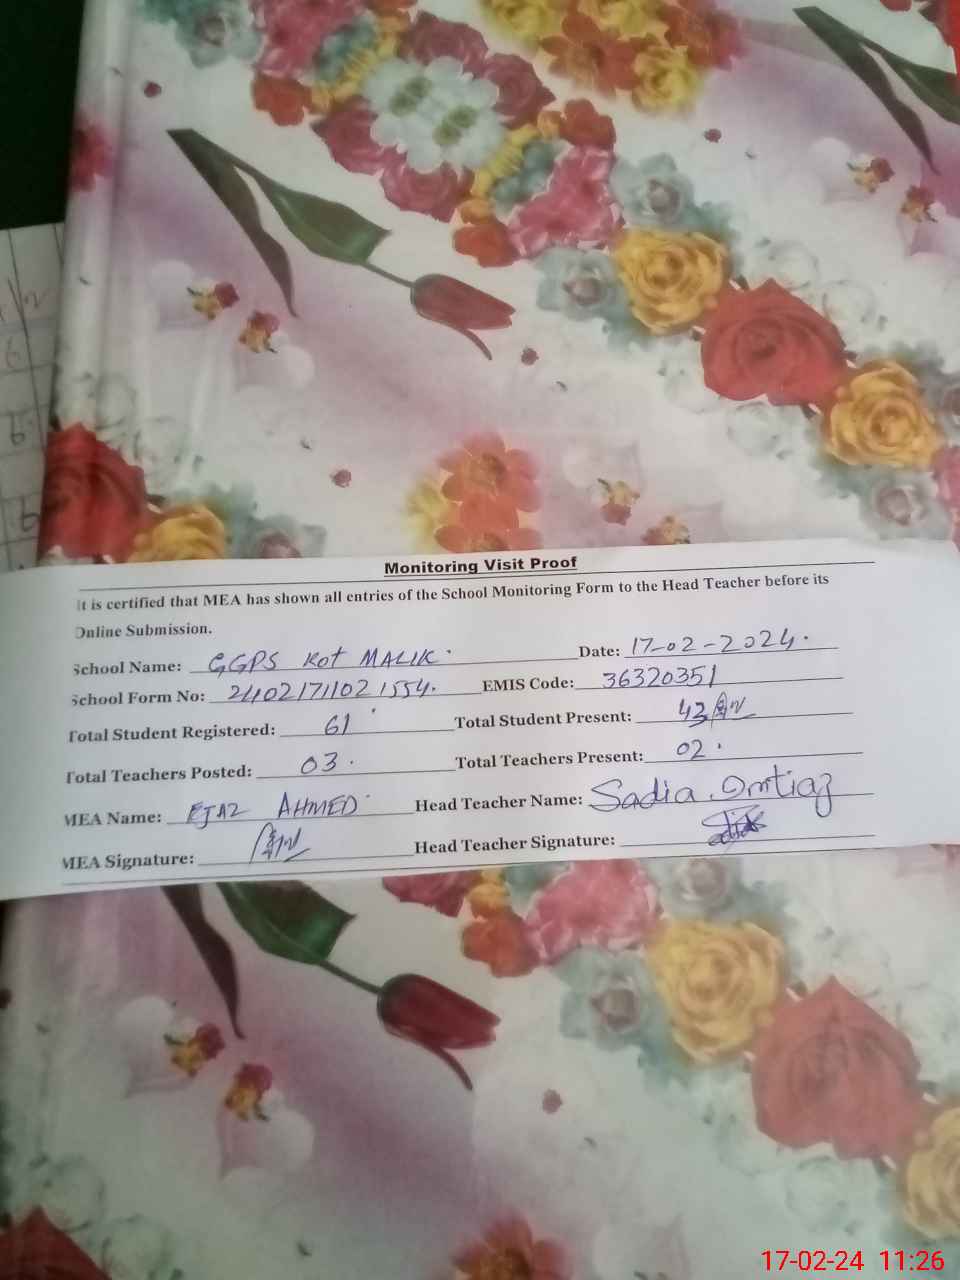 Monitoring Visit Proof
It is certified that MEA has shown all entries of the School Monitoring Form to the Head Teacher before its
Online Submission.
School Name: GGPS Kot MALIK. Date: 17-02-2024.
School Form No: 24021711021554. EMIS Code: 36320351
Total Student Registered: 61 Total Student Present: 43
Total Teachers Posted: 03. Total Teachers Present: 02.
MEA Name: EJAZ AHMED Head Teacher Name: Sadia Omtiaz
MEA Signature: Head Teacher Signature:
17-02-24 11:26